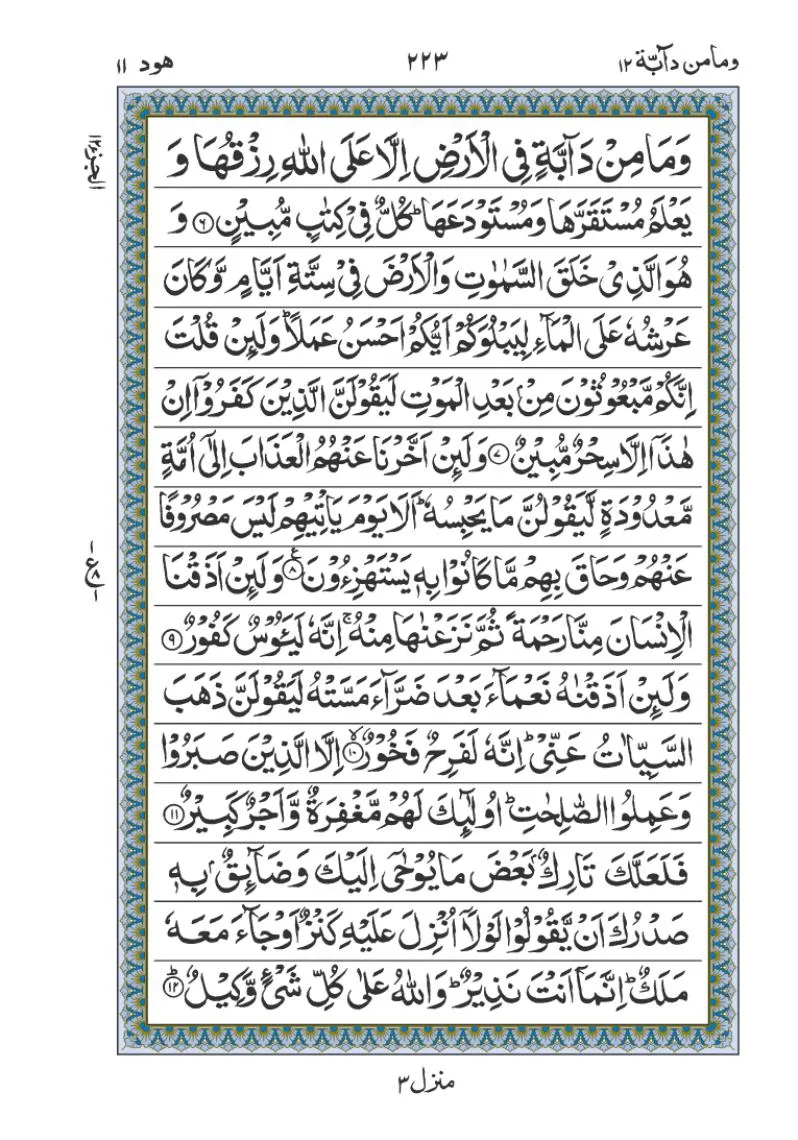 وما من دآبّة ١٢ ٢٢٣ هود ١١
الجزء ١٢
وَمَا مِنْ دَآبَّةٍ فِي الْاَرْضِ اِلَّا عَلَى اللهِ رِزْقُهَا وَ
يَعْلَمُ مُسْتَقَرَّهَا وَمُسْتَوْدَعَهَا ؕ كُلٌّ فِيْ كِتٰبٍ مُّبِيْنٍ ۝٦ وَ
هُوَ الَّذِيْ خَلَقَ السَّمٰوٰتِ وَالْاَرْضَ فِيْ سِتَّةِ اَيَّامٍ وَّكَانَ
عَرْشُهٗ عَلَى الْمَآءِ لِيَبْلُوَكُمْ اَيُّكُمْ اَحْسَنُ عَمَلًا ؕ وَلَىِٕنْ قُلْتَ
اِنَّكُمْ مَّبْعُوْثُوْنَ مِنْۢ بَعْدِ الْمَوْتِ لَيَقُوْلَنَّ الَّذِيْنَ كَفَرُوْۤا اِنْ
هٰذَاۤ اِلَّا سِحْرٌ مُّبِيْنٌ ۝٧ وَلَىِٕنْ اَخَّرْنَا عَنْهُمُ الْعَذَابَ اِلٰۤى اُمَّةٍ
مَّعْدُوْدَةٍ لَّيَقُوْلُنَّ مَا يَحْبِسُهٗ ؕ اَلَا يَوْمَ يَاْتِيْهِمْ لَيْسَ مَصْرُوْفًا
عَنْهُمْ وَحَاقَ بِهِمْ مَّا كَانُوْا بِهٖ يَسْتَهْزِءُوْنَ ۝٨ ع وَلَىِٕنْ اَذَقْنَا
ع ٨
الْاِنْسَانَ مِنَّا رَحْمَةً ثُمَّ نَزَعْنٰهَا مِنْهُ ۚ اِنَّهٗ لَيَـُٔوْسٌ كَفُوْرٌ ۝٩
وَلَىِٕنْ اَذَقْنٰهُ نَعْمَآءَ بَعْدَ ضَرَّآءَ مَسَّتْهُ لَيَقُوْلَنَّ ذَهَبَ
السَّيِّاٰتُ عَنِّيْ ؕ اِنَّهٗ لَفَرِحٌ فَخُوْرٌ ۝١٠ ۙ اِلَّا الَّذِيْنَ صَبَرُوْا
وَعَمِلُوا الصّٰلِحٰتِ ؕ اُولٰٓىِٕكَ لَهُمْ مَّغْفِرَةٌ وَّاَجْرٌ كَبِيْرٌ ۝١١
فَلَعَلَّكَ تَارِكٌۢ بَعْضَ مَا يُوْحٰۤى اِلَيْكَ وَضَآىِٕقٌۢ بِهٖ
صَدْرُكَ اَنْ يَّقُوْلُوْا لَوْلَاۤ اُنْزِلَ عَلَيْهِ كَنْزٌ اَوْ جَآءَ مَعَهٗ
مَلَكٌ ؕ اِنَّمَاۤ اَنْتَ نَذِيْرٌ ؕ وَاللهُ عَلٰى كُلِّ شَيْءٍ وَّكِيْلٌ ۝١٢ ؕ
منزل ٣